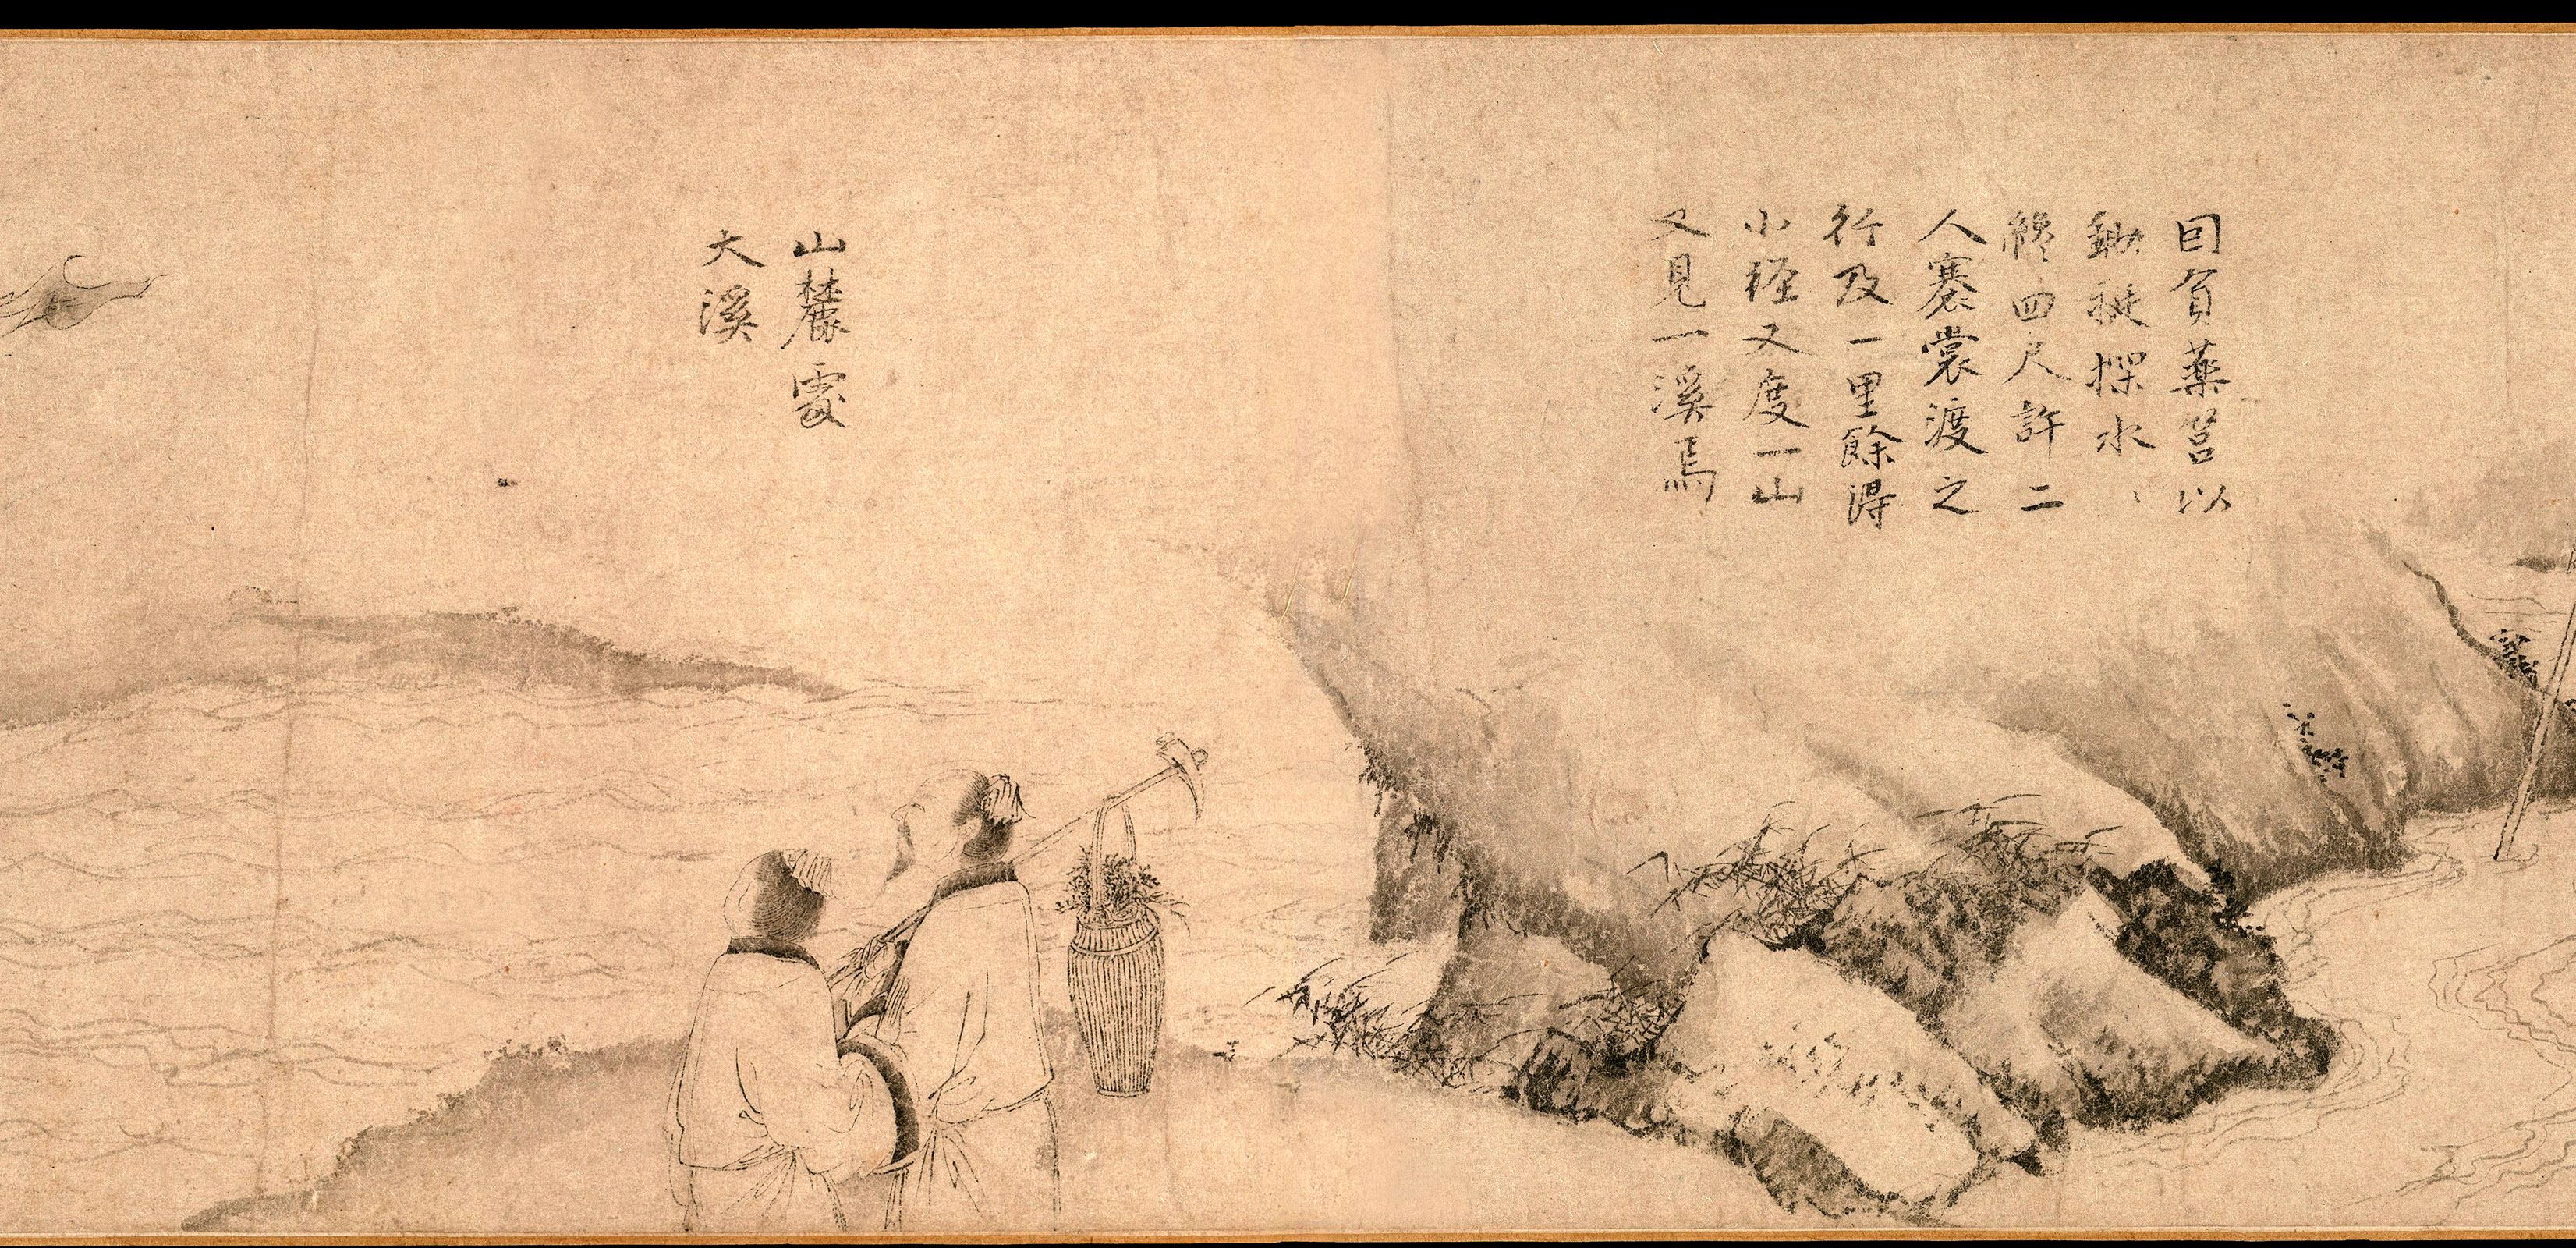 回負藥筥以
鋤㨖探水、
纔四尺許二
人褰裳渡之
行及一里餘得
小徑又度一山
又見一溪焉
山麓處
大溪